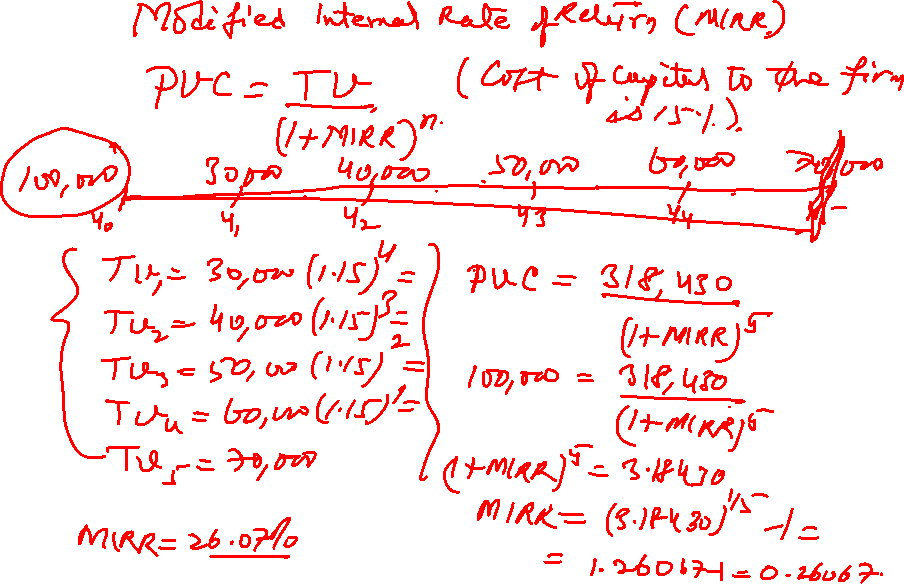 Modified Internal Rate of Return (MIRR)
PVC = TV / (1+MIRR)^n. (Cost of capital to the firm is 15%).
100,000 30,000 40,000 50,000 60,000 70,000
Y0 Y1 Y2 Y3 Y4
TV1 = 30,000 (1.15)^4 =
TV2 = 40,000 (1.15)^3 =
TV3 = 50,000 (1.15)^2 =
TV4 = 60,000 (1.15)^1 =
TV5 = 70,000
MIRR = 26.07%
PVC = 318,430 / (1+MIRR)^5
100,000 = 318,430 / (1+MIRR)^5
(1+MIRR)^5 = 3.18430
MIRR = (3.18430)^1/5 - 1 =
= 1.26067-1 = 0.26067.